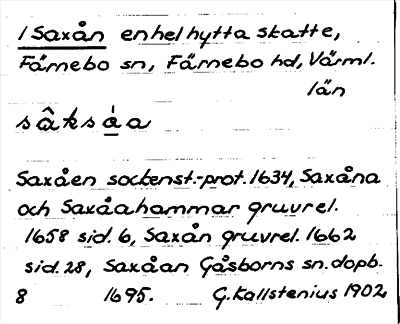 1 Saxån enhel hytta skatte,
Färnebo sn, Färnebo hd, Värml.
län
sâksáa
Saxåen sockenst.-prot. 1634, Saxåna
och Saxåahammar gruvrel.
1658 sid. 6, Saxån gruvrel. 1662
sid. 28, Saxåan Gåsborns sn. dopb.
8 1695. G. Kallstenius 1902